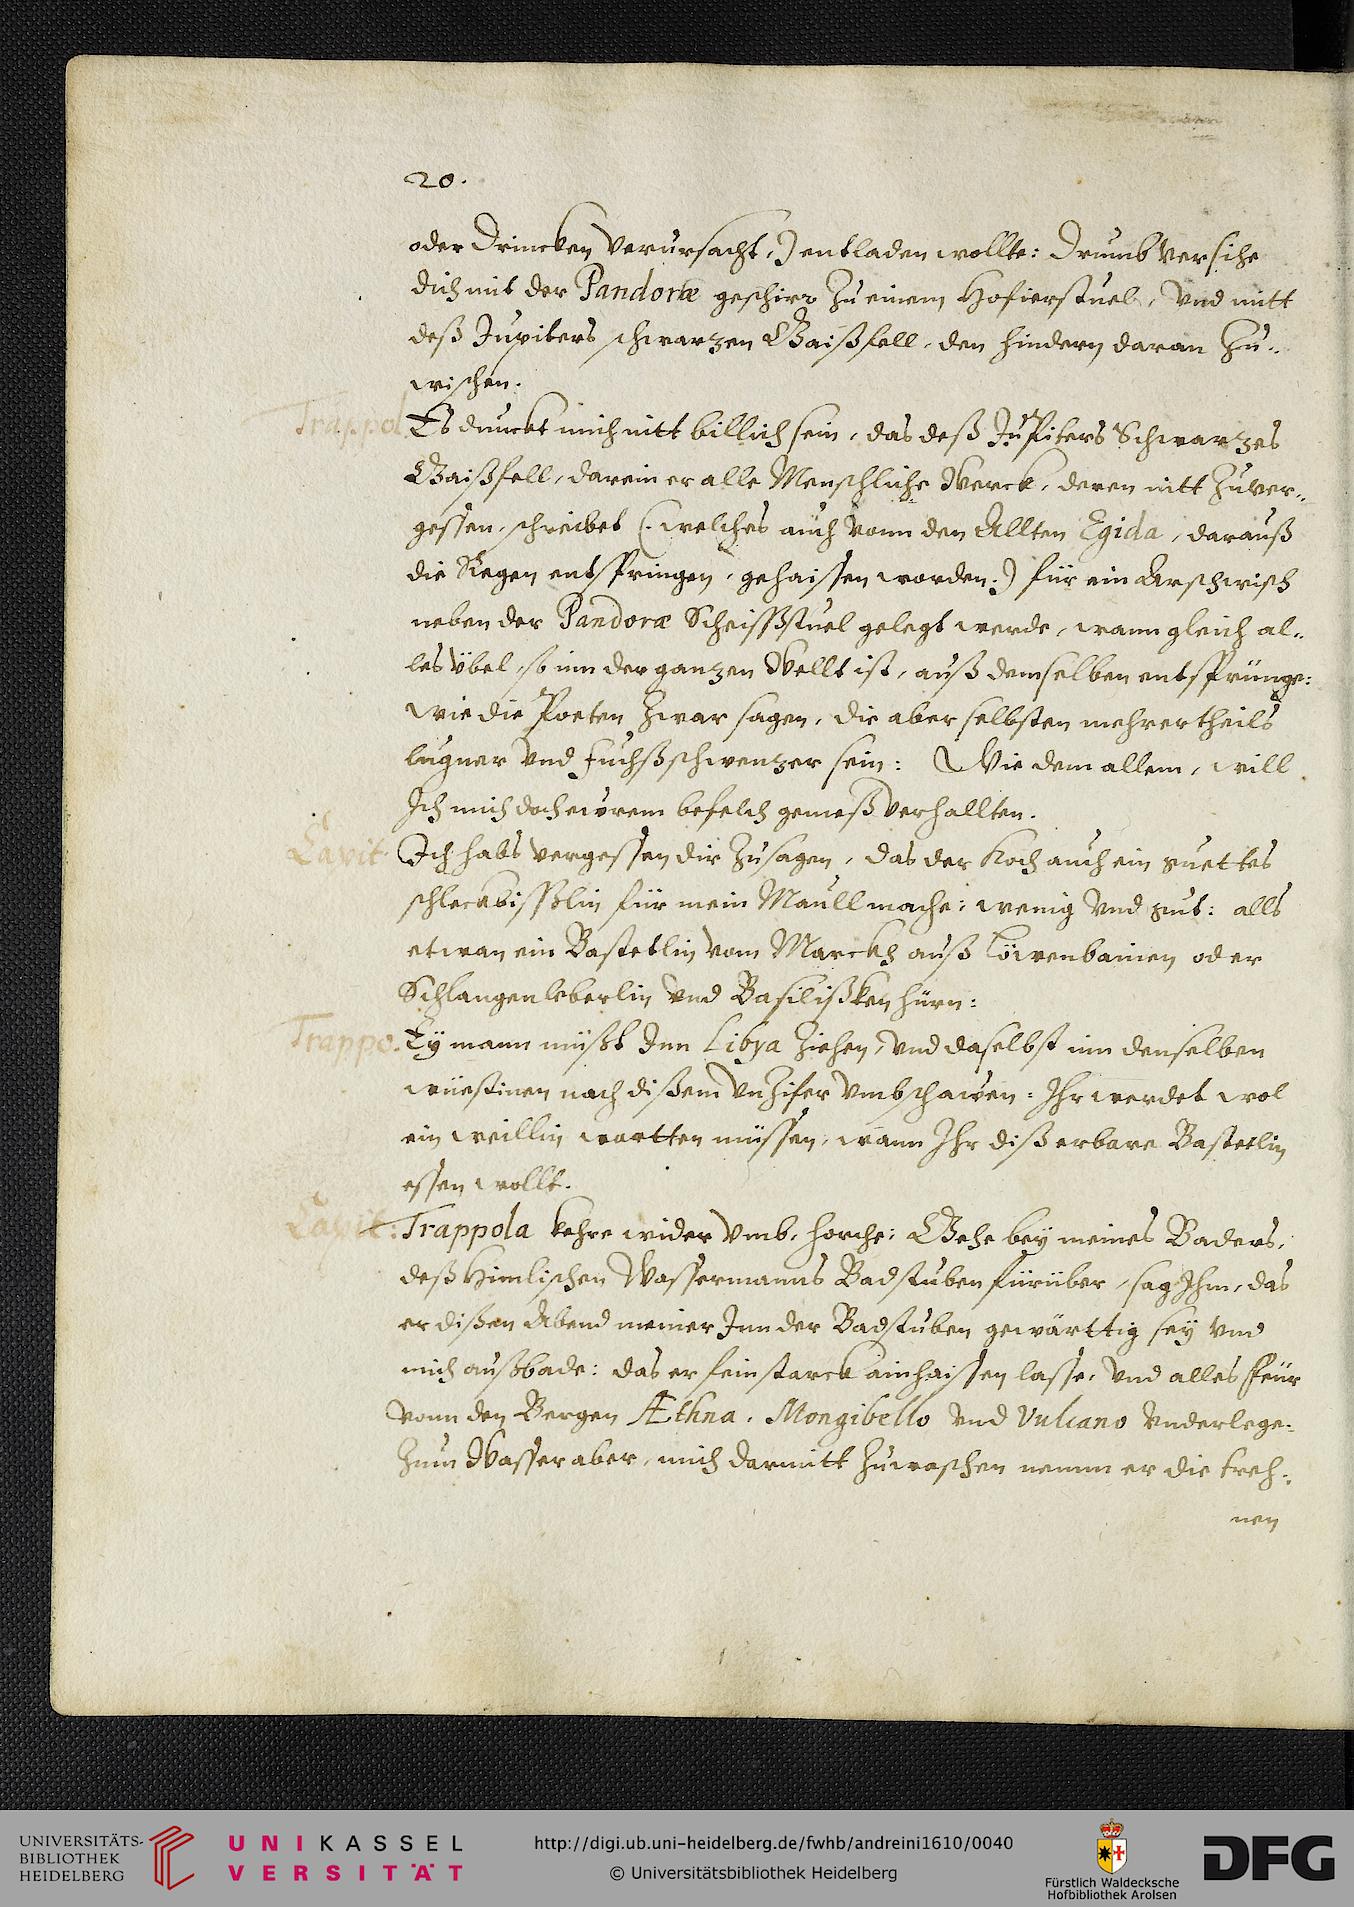 20.
oder Drincken verursacht,) entladen wollte: Drumb versihe
dich mit der Pandoræ geschirr zu einem Hofierstuel, vnd mitt
deß Jupiters schwarzen Gaißfell, den hindern daran zu-
wischen.
Trappol. Es dunckt mich nitt billich sein, das deß Jupiters Schwarzes
Gaißfell, darein er alle Menschliche Werck, deren nitt zuver-
gessen, schreibet (welches auch vonn den Allten Egida, darauß
die Regen entspringen, gehaissen worden:) für ein Arschwisch
neben der Pandoræ Scheissßtuel gelegt werde, wann gleich al-
les übel, so inn der ganzen Wellt ist, auß demselben entsprünge:
wie die Poeten zwar sagen, die aber selbsten mehrertheils
lugner vnd fuchßschwenzer sein: Wie dem allem, will
Ich mich doch eürem befelch gemeß verhallten.
Capit. Ich habs vergessen dir zusagen, das der Koch auch ein guettes
schleckbissßlin für mein Maull mache: wenig vnd gut: alls
etwan ein Bastetlin vom Marckh auß Löwenbainen oder
Schlangenleberlin vnd Basilißken hürn:
Trappo. Ey mann müßt Inn Libya ziehen, vnd daselbst inn denselben
wüestinen nach dißem vnzifer vmbschawen: Ihr werdet wol
ein weillin wartten müssen, wann Ihr diß erbare Bastetlin
essen wollt.
Capit: Trappola kehre wider vmb, horche: Gehe bey meines Baders,
deß Himlischen Wassermanns Badstuben fürüber, sag Ihm, das
er dißen Abend meiner Inn der Badstuben gewärttig sey vnd
mich außbade: das er fein starck ainhaissen lasse, vnd alles ffeür
vonn den Bergen Æthna, Mongibello vnd Vulcano vnderlege:
Zum Wasser aber, mich darmitt zuwaschen nemm er die treh-
nen
UNIVERSITÄTS-
BIBLIOTHEK
HEIDELBERG
UNIKASSEL
VERSITÄT
http://digi.ub.uni-heidelberg.de/fwhb/andreini1610/0040
© Universitätsbibliothek Heidelberg
Fürstlich Waldecksche
Hofbibliothek Arolsen
DFG